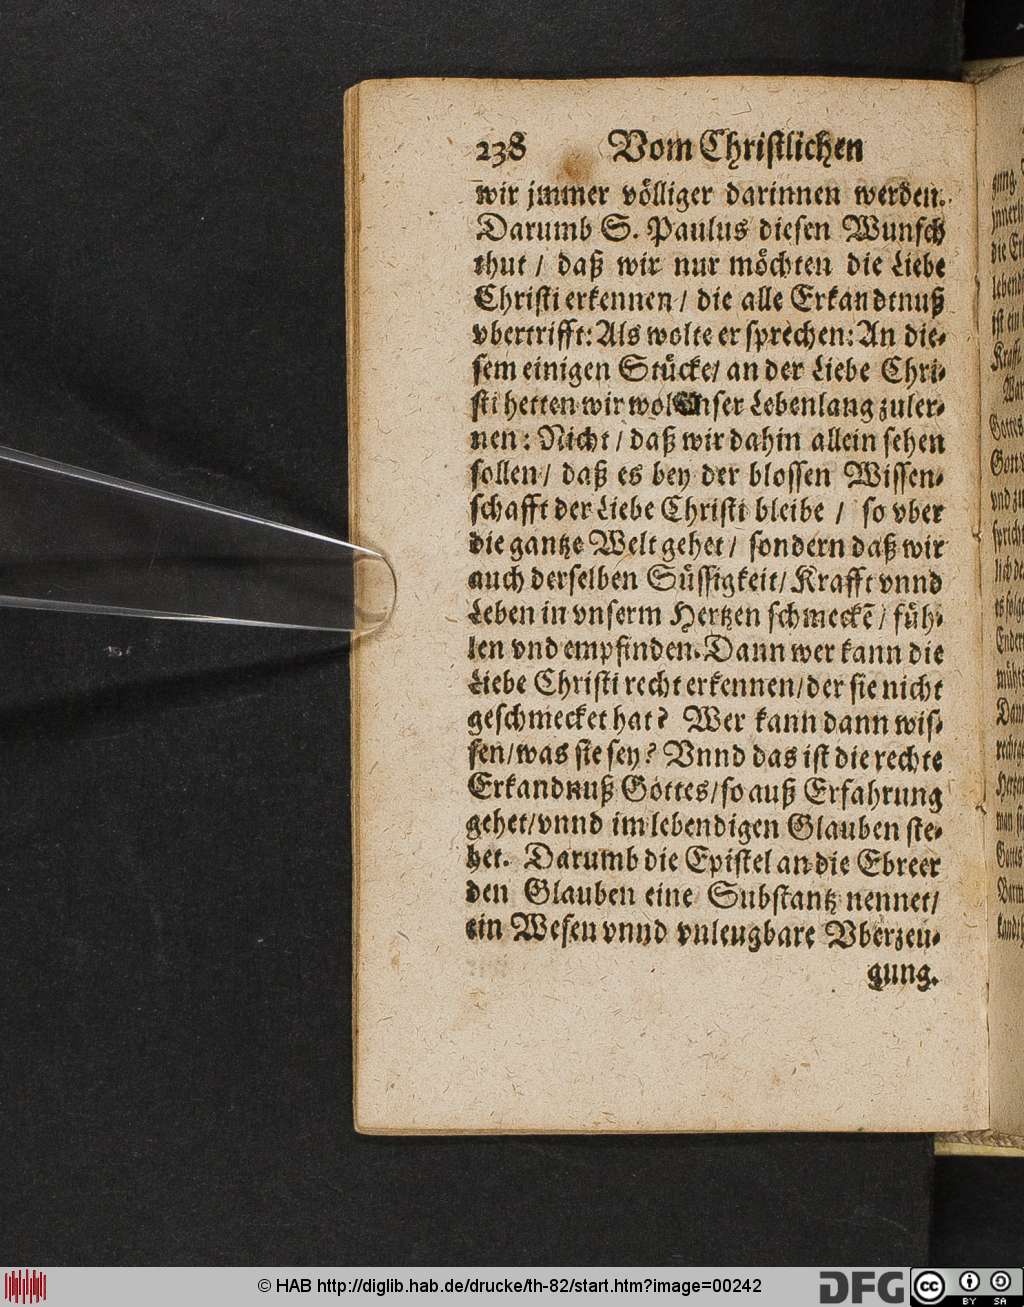 238 Vom Christlichen
wir jmmer völliger darinnen werden.
Darumb S. Paulus diesen Wunsch
thut / daß wir nur möchten die Liebe
Christi erkennen / die alle Erkandtnuß
vbertrifft: Als wolte er sprechen: An die-
sem einigen Stücke/ an der Liebe Chri-
sti hetten wir wol Vnser Lebenlang zuler-
nen: Nicht / daß wir dahin allein sehen
sollen / daß es bey der blossen Wissen-
schafft der Liebe Christi bleibe / so vber
die gantze Welt gehet / sondern daß wir
auch derselben Süssigkeit / Krafft vnnd
Leben in vnserm Hertzen schmeckē / füh-
len vnd empfinden. Dann wer kann die
Liebe Christi recht erkennen/der sie nicht
geschmecket hat? Wer kann dann wis-
sen/was sie sey? Vnnd das ist die rechte
Erkandnuß Gottes/so auß Erfahrung
gehet/vnnd im lebendigen Glauben ste-
het. Darumb die Epistel an die Ebreer
den Glauben eine Substantz nennet/
ein Wesen vnnd vnleugbare Vberzeu-
gung.
© HAB http://diglib.hab.de/drucke/th-82/start.htm?image=00242
DFG
cc BY SA